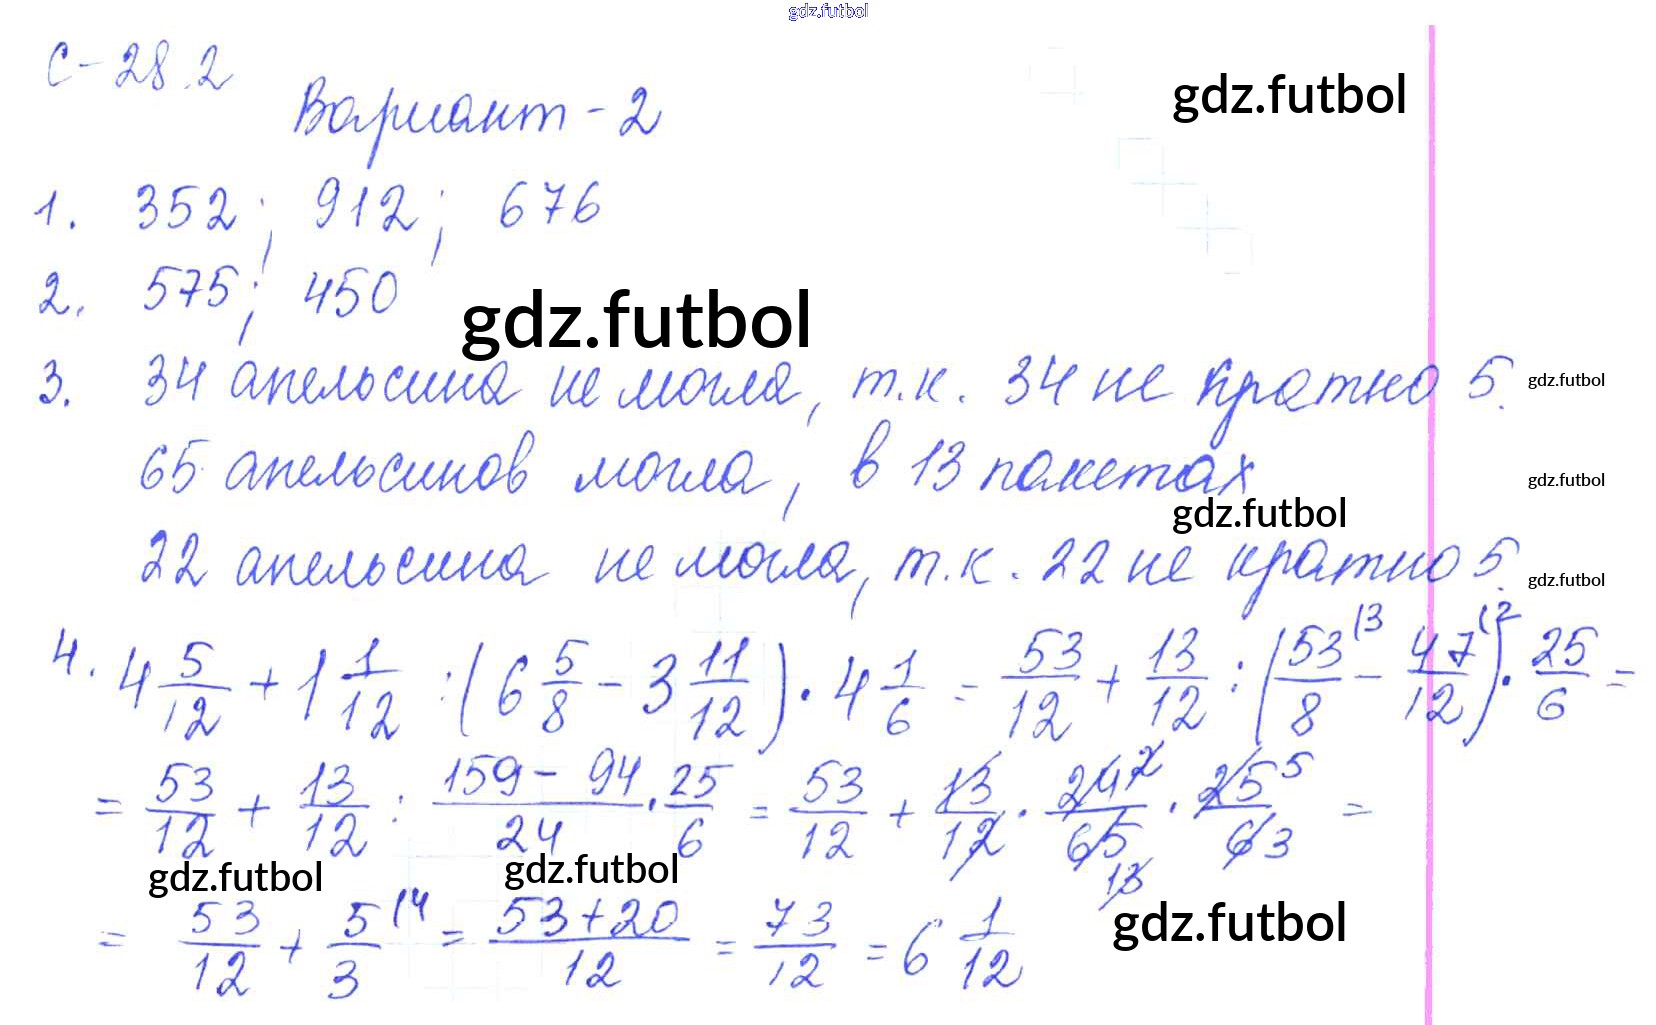 gdz.futbol
С-28.2
gdz.futbol
Вариант-2
1. 352; 912; 676
2. 575; 450
gdz.futbol
3. 34 апельсина не могла, т.к. 34 не кратно 5.
gdz.futbol
65 апельсинов могла, в 13 пакетах
gdz.futbol
gdz.futbol
22 апельсина не могла, т.к. 22 не кратно 5.
gdz.futbol
4. 4 5/12 + 1 1/12 : (6 5/8 - 3 11/12) · 4 1/6 = 53/12 + 13/12 : (53/8 (3 - 47/12 (2) · 25/6 =
= 53/12 + 13/12 : 159-94/24 · 25/6 = 53/12 + 13/12 · 24 2/65 13 · 25 5/6 3 =
gdz.futbol gdz.futbol
= 53/12 + 5/3 (4 = 53+20/12 = 73/12 = 6 1/12
gdz.futbol